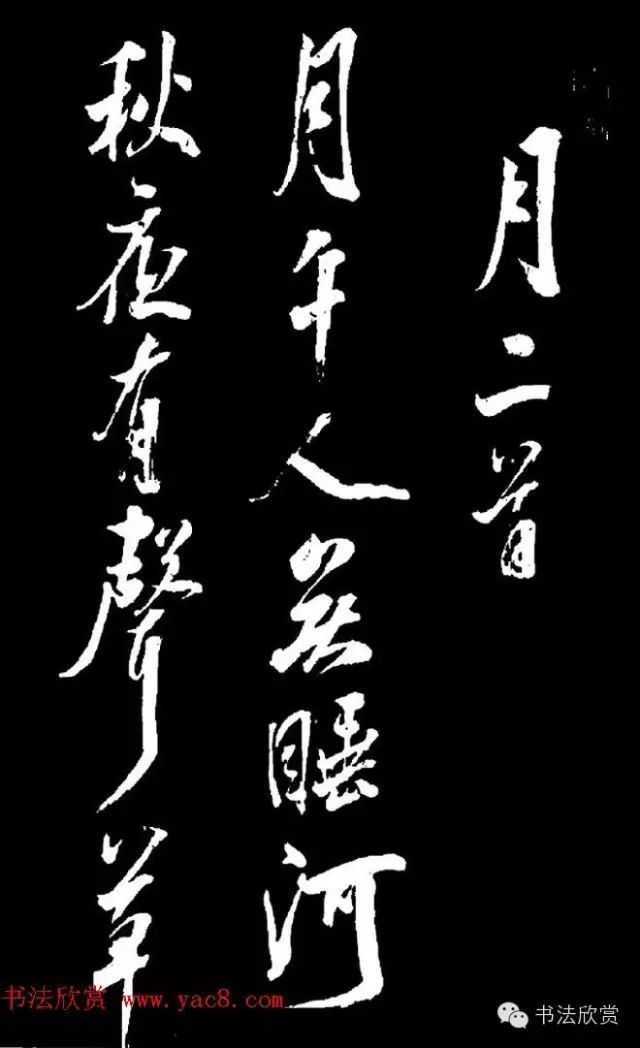 月二首
月午人無睡河
秋夜有聲草
书法欣赏 www.yac8.com
书法欣赏